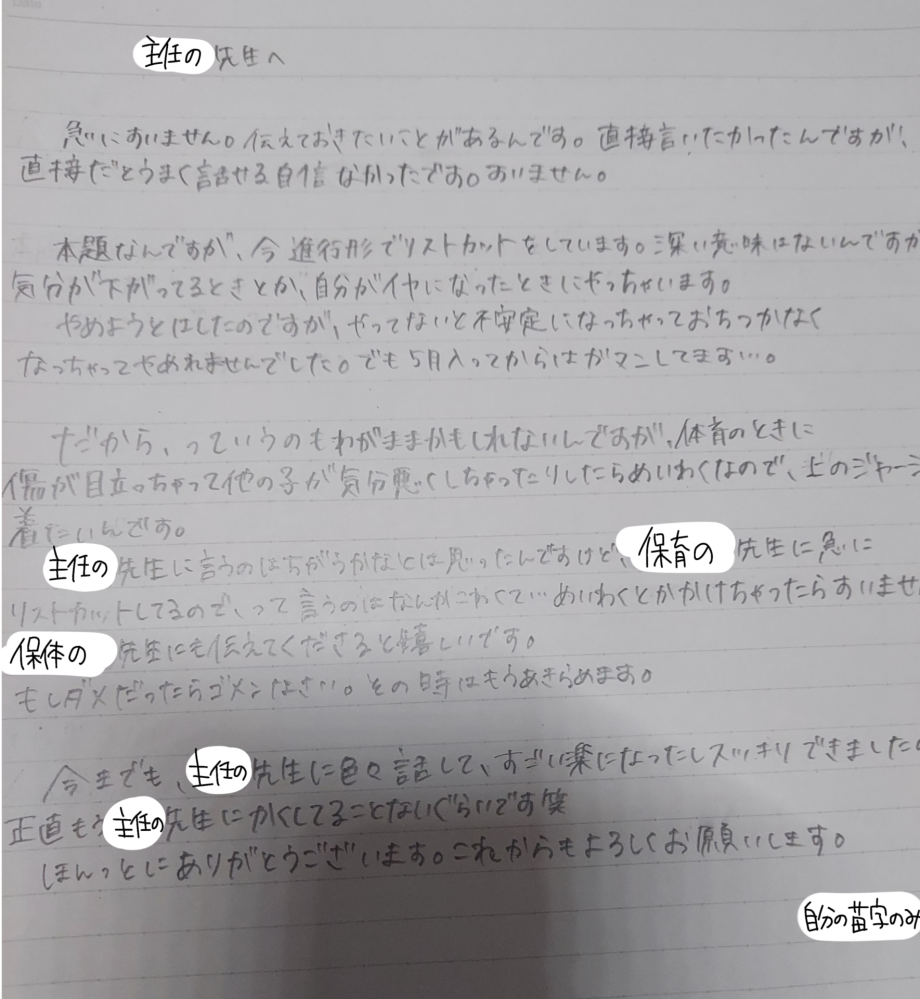 主任の先生へ
急にすいません。伝えておきたいことがあるんです。直接言いたかったんですが、
直接だとうまく話せる自信なかったです。すいません。
本題なんですが、今進行形でリストカットをしています。深い意味はないんですが
気分が下がってるときとか、自分がイヤになったときにやっちゃいます。
やめようとはしたのですが、やってないと不安定になっちゃっておちつかなく
なっちゃってやめれませんでした。でも5月入ってからはガマンしてます…。
だから、っていうのもわがままかもしれないんですが、体育のときに
傷が目立っちゃって他の子が気分悪くしちゃったりしたらめいわくなので、上のジャージ
着たいんです。
主任の先生に言うのはちがうかなとは思ったんですけど、保育の先生に急に
リストカットしてるので、って言うのはなんかこわくて…めいわくとかかけちゃったらすいませ
保体の先生にも伝えてくださると嬉しいです。
もしダメだったらゴメンなさい。その時はもうあきらめます。
今までも、主任の先生に色々話して、すごい楽になったしスッキリできました。
正直もう主任の先生にかくしてることないぐらいです笑
ほんっとにありがとうございます。これからもよろしくお願いします。
自分の苗字のみ